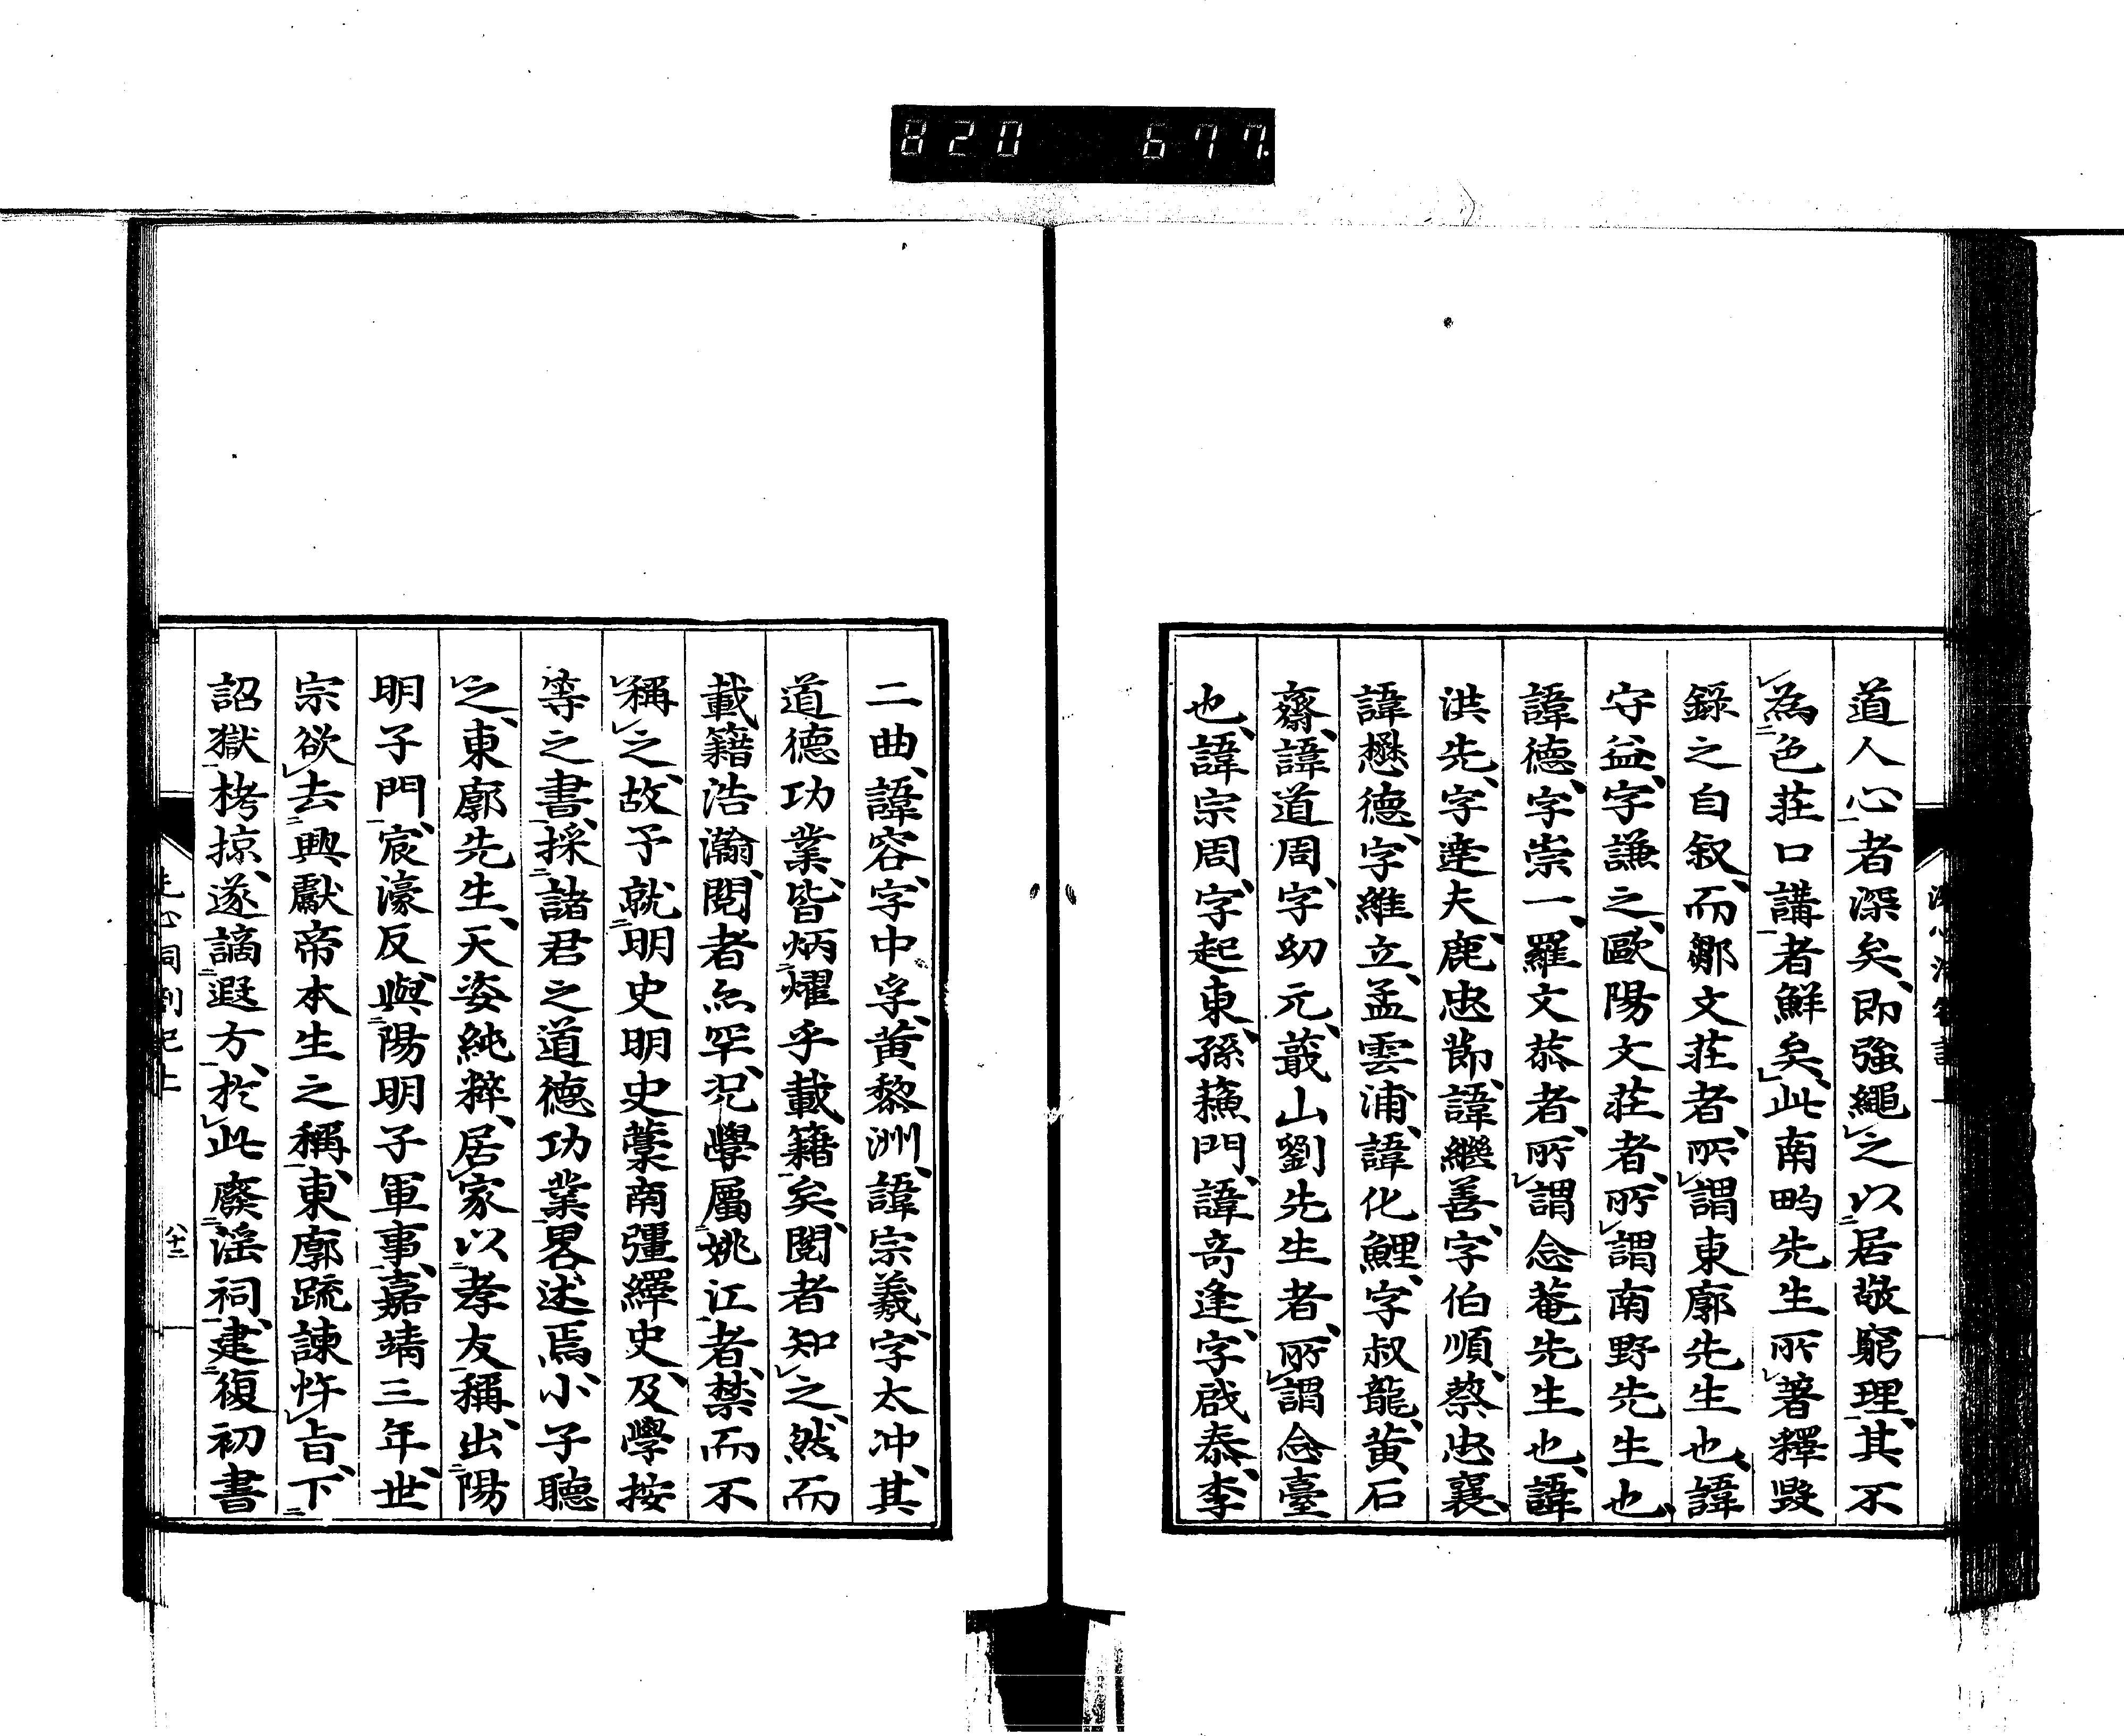 820 677.
道人心者深矣、即強繩之以居敬窮理、其不
為色荘口講者鮮矣、此南畇先生所著釋毀
錄之自叙、而鄒文荘者、所謂東廓先生也、諱
守益、字謙之、歐陽文荘者、所謂南野先生也、
諱德、字崇一、羅文恭者、所謂念菴先生也、諱
洪先、字達夫、鹿忠節、諱繼善、字伯順、蔡忠襄、
諱懋德、字維立、孟雲浦、諱化鯉、字叔龍、黄石
齋、諱道周、字幼元、蕺山劉先生者、所謂念臺
也、諱宗周、字起東、孫蘓門、諱奇逢、字啟泰、李
二曲、諱容、字中孚、黄黎洲、諱宗羲、字太冲、其
道德功業、皆炳燿乎載籍矣、閲者知之、然而
載籍浩瀚、閲者亦罕、况學屬姚江者、禁而不
稱之、故予就明史明史藁南彊繹史、及學按
等之書、採諸君之道德功業畧述焉、小子聴
之、東廓先生、天姿純粹、居家以孝友稱、出陽
明子門、宸濠反、與陽明子軍事、嘉靖三年、世
宗欲去興獻帝本生之稱、東廓疏諫忤旨、下
詔獄栲掠、遂謫遐方、於此廢滛祠、建復初書
八十二